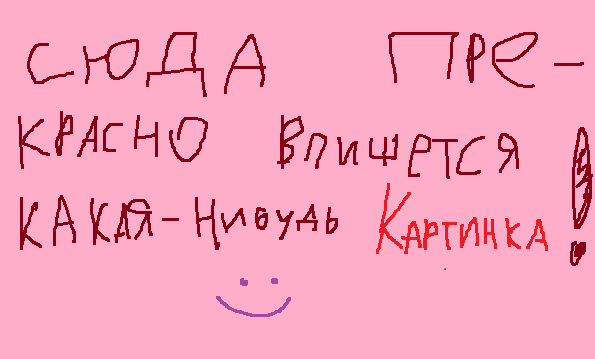 СЮДА ПРЕ-
КРАСНО ВПИШЕТСЯ !
КАКАЯ-НИБУДЬ КАРТИНКА